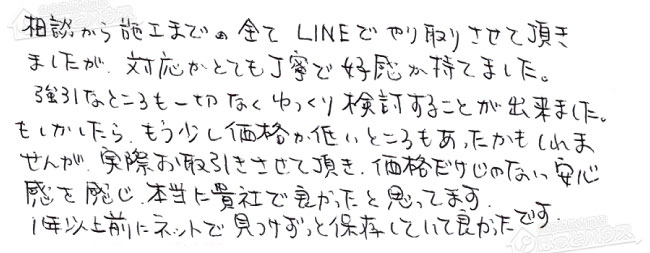 相談から施工までの全て LINEでやり取りさせて頂き
ましたが、対応がとても丁寧で好感が持てました。
強引なところも一切なくゆっくり検討することが出来ました。
もしかしたら、もう少し価格が低いところもあったかもしれま
せんが、実際お取引きさせて頂き、価格だけじゃない安心
感を感じ、本当に貴社で良かったと思ってます。
1年以上前にネットで見つけずっと保存していて良かったです。